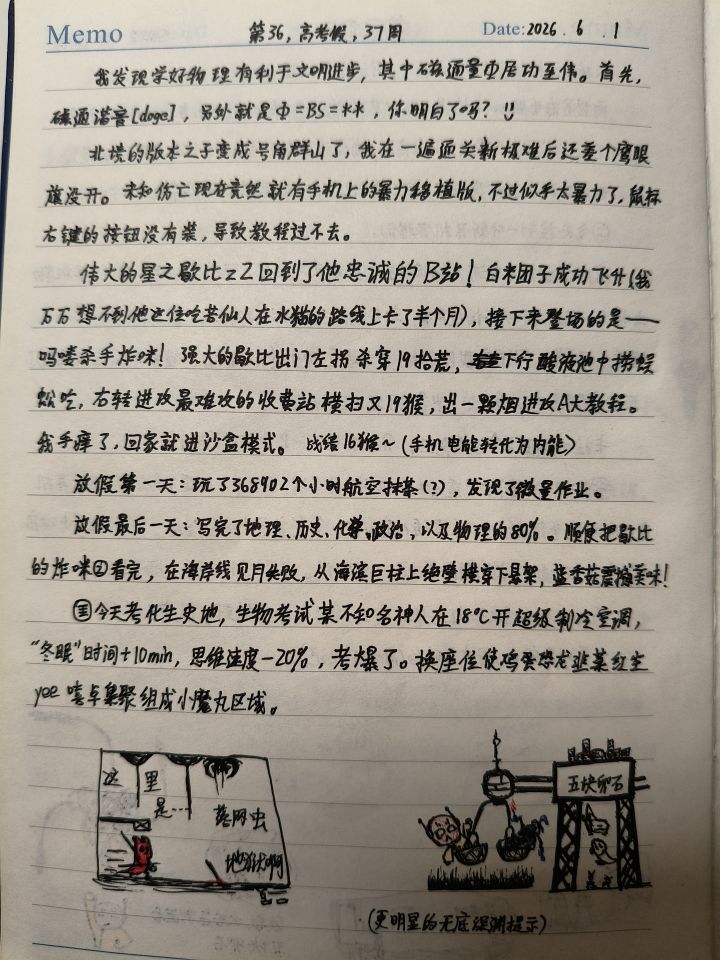 Memo 第36,高考假,37周 Date:2026.6.1
我发现学好物理有利于文明进步,其中磁通量Φ居功至伟。首先,
磁通谐音[doge],另外就是Φ=BS=**,你明白了吗?!!
北境的版本之子变成号角群山了,我在一遍通关新极难后还差个鹰眼
旗没开。未知伤亡现在竟然就有手机上的暴力移植版,不过似乎太暴力了,鼠标
右键的按钮没有装,导致教程过不去。
伟大的星之歇比zZ回到了他忠诚的B站!白米团子成功飞升(我
万万想不到他这位吃苦仙人在水猫的路线上卡了半个月),接下来登场的是——
吗喽杀手炸咪!强大的歇比出门左拐杀穿19拾荒,下行酸液池中捞蜈
蚣吃,右转进攻最难攻的收费站横扫又19猴,出一颗烟进攻A大教程。
我手痒了,回家就进沙盒模式。战绩16猴~(手机电能转化为内能)
放假第一天:玩了368902个小时航空抹茶(?),发现了微量作业。
放假最后一天:写完了地理、历史、化学、政治,以及物理的80%。顺便把歇比
的炸咪②看完,在海岸线见月失败,从海滨巨柱上绝壁横穿下悬架,蓝香菇震撼美味!
今天考化生史地,生物考试某不知名神人在18°C开超级制冷空调,
“冬眠”时间+10min,思维速度-20%,考爆了。换座位使鸡蛋恐龙韭菜红生
yee 嘻卓集聚组成小魔丸区域。
这里是……
落网虫
地狱啊
五块卵石
(更明显的无底深渊提示)